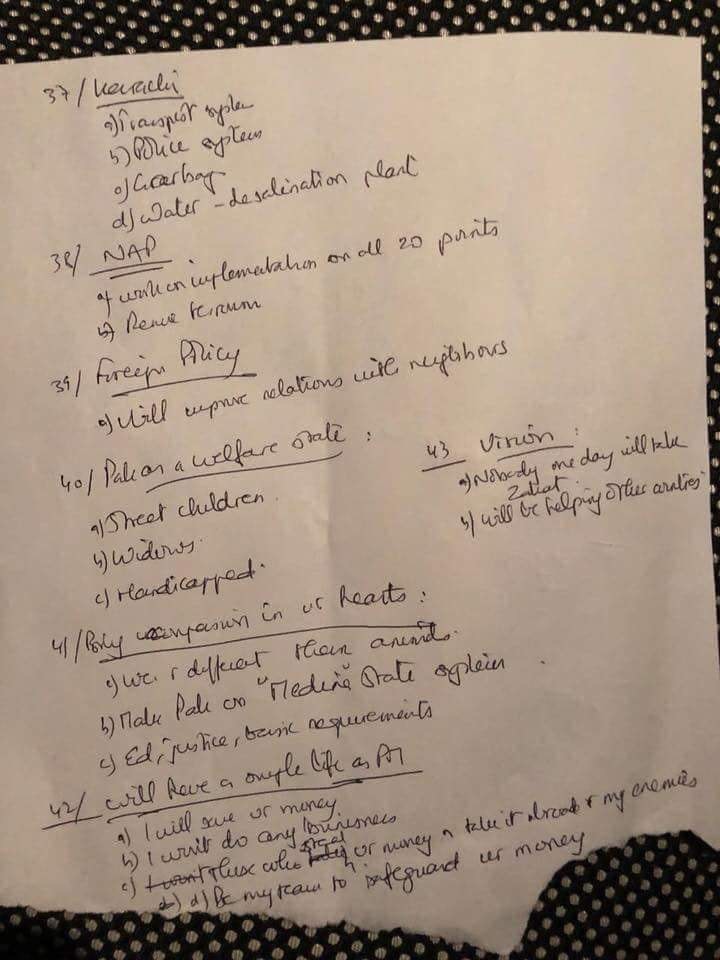 37/ Karachi
a) Transport system
b) Police system
c) Garbag
d) Water - desalination plant
38/ NAP
a) work on implementation on all 20 points
b)
39/ Foreign Policy
a) Will improve relations with neighbours
40/ Pak as a welfare state :
a) Street children
b) Widows.
c) Handicapped.
43 Vision :
a) Nobody one day will take
Zakat
b) will be helping other
41/ compassion in ur hearts :
a) We r different than animals.
b) Make Pak on "Medina" State system
c) Ed, justice, basic requirements
42/ will have a simple life as PM
a) I will save ur money
b) I won't do any business
c) I won't those who steal ur money n take it abroad r my enemies
d) Be my team to safeguard ur money